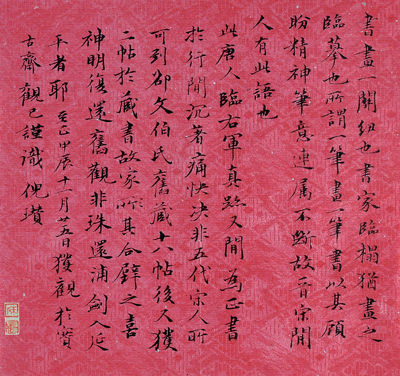 書畫一關紐也書家臨搨猶畫之
臨摹也所謂筆畫筆書以其顧
盼精神筆意連属不斷故晉宋間
人有此語也
此唐人臨右軍真跡又間為正書
於行間沉著痛快决非五代宋人所
可列卻文伯氏舊藏十六帖後又獲
二帖於藏書故家所其合璧之喜
神明復還舊觀非珠還浦劍入延
平者耶至正甲辰十一月廿五日獲觀於寶
古齋觀已謹識倪瓚